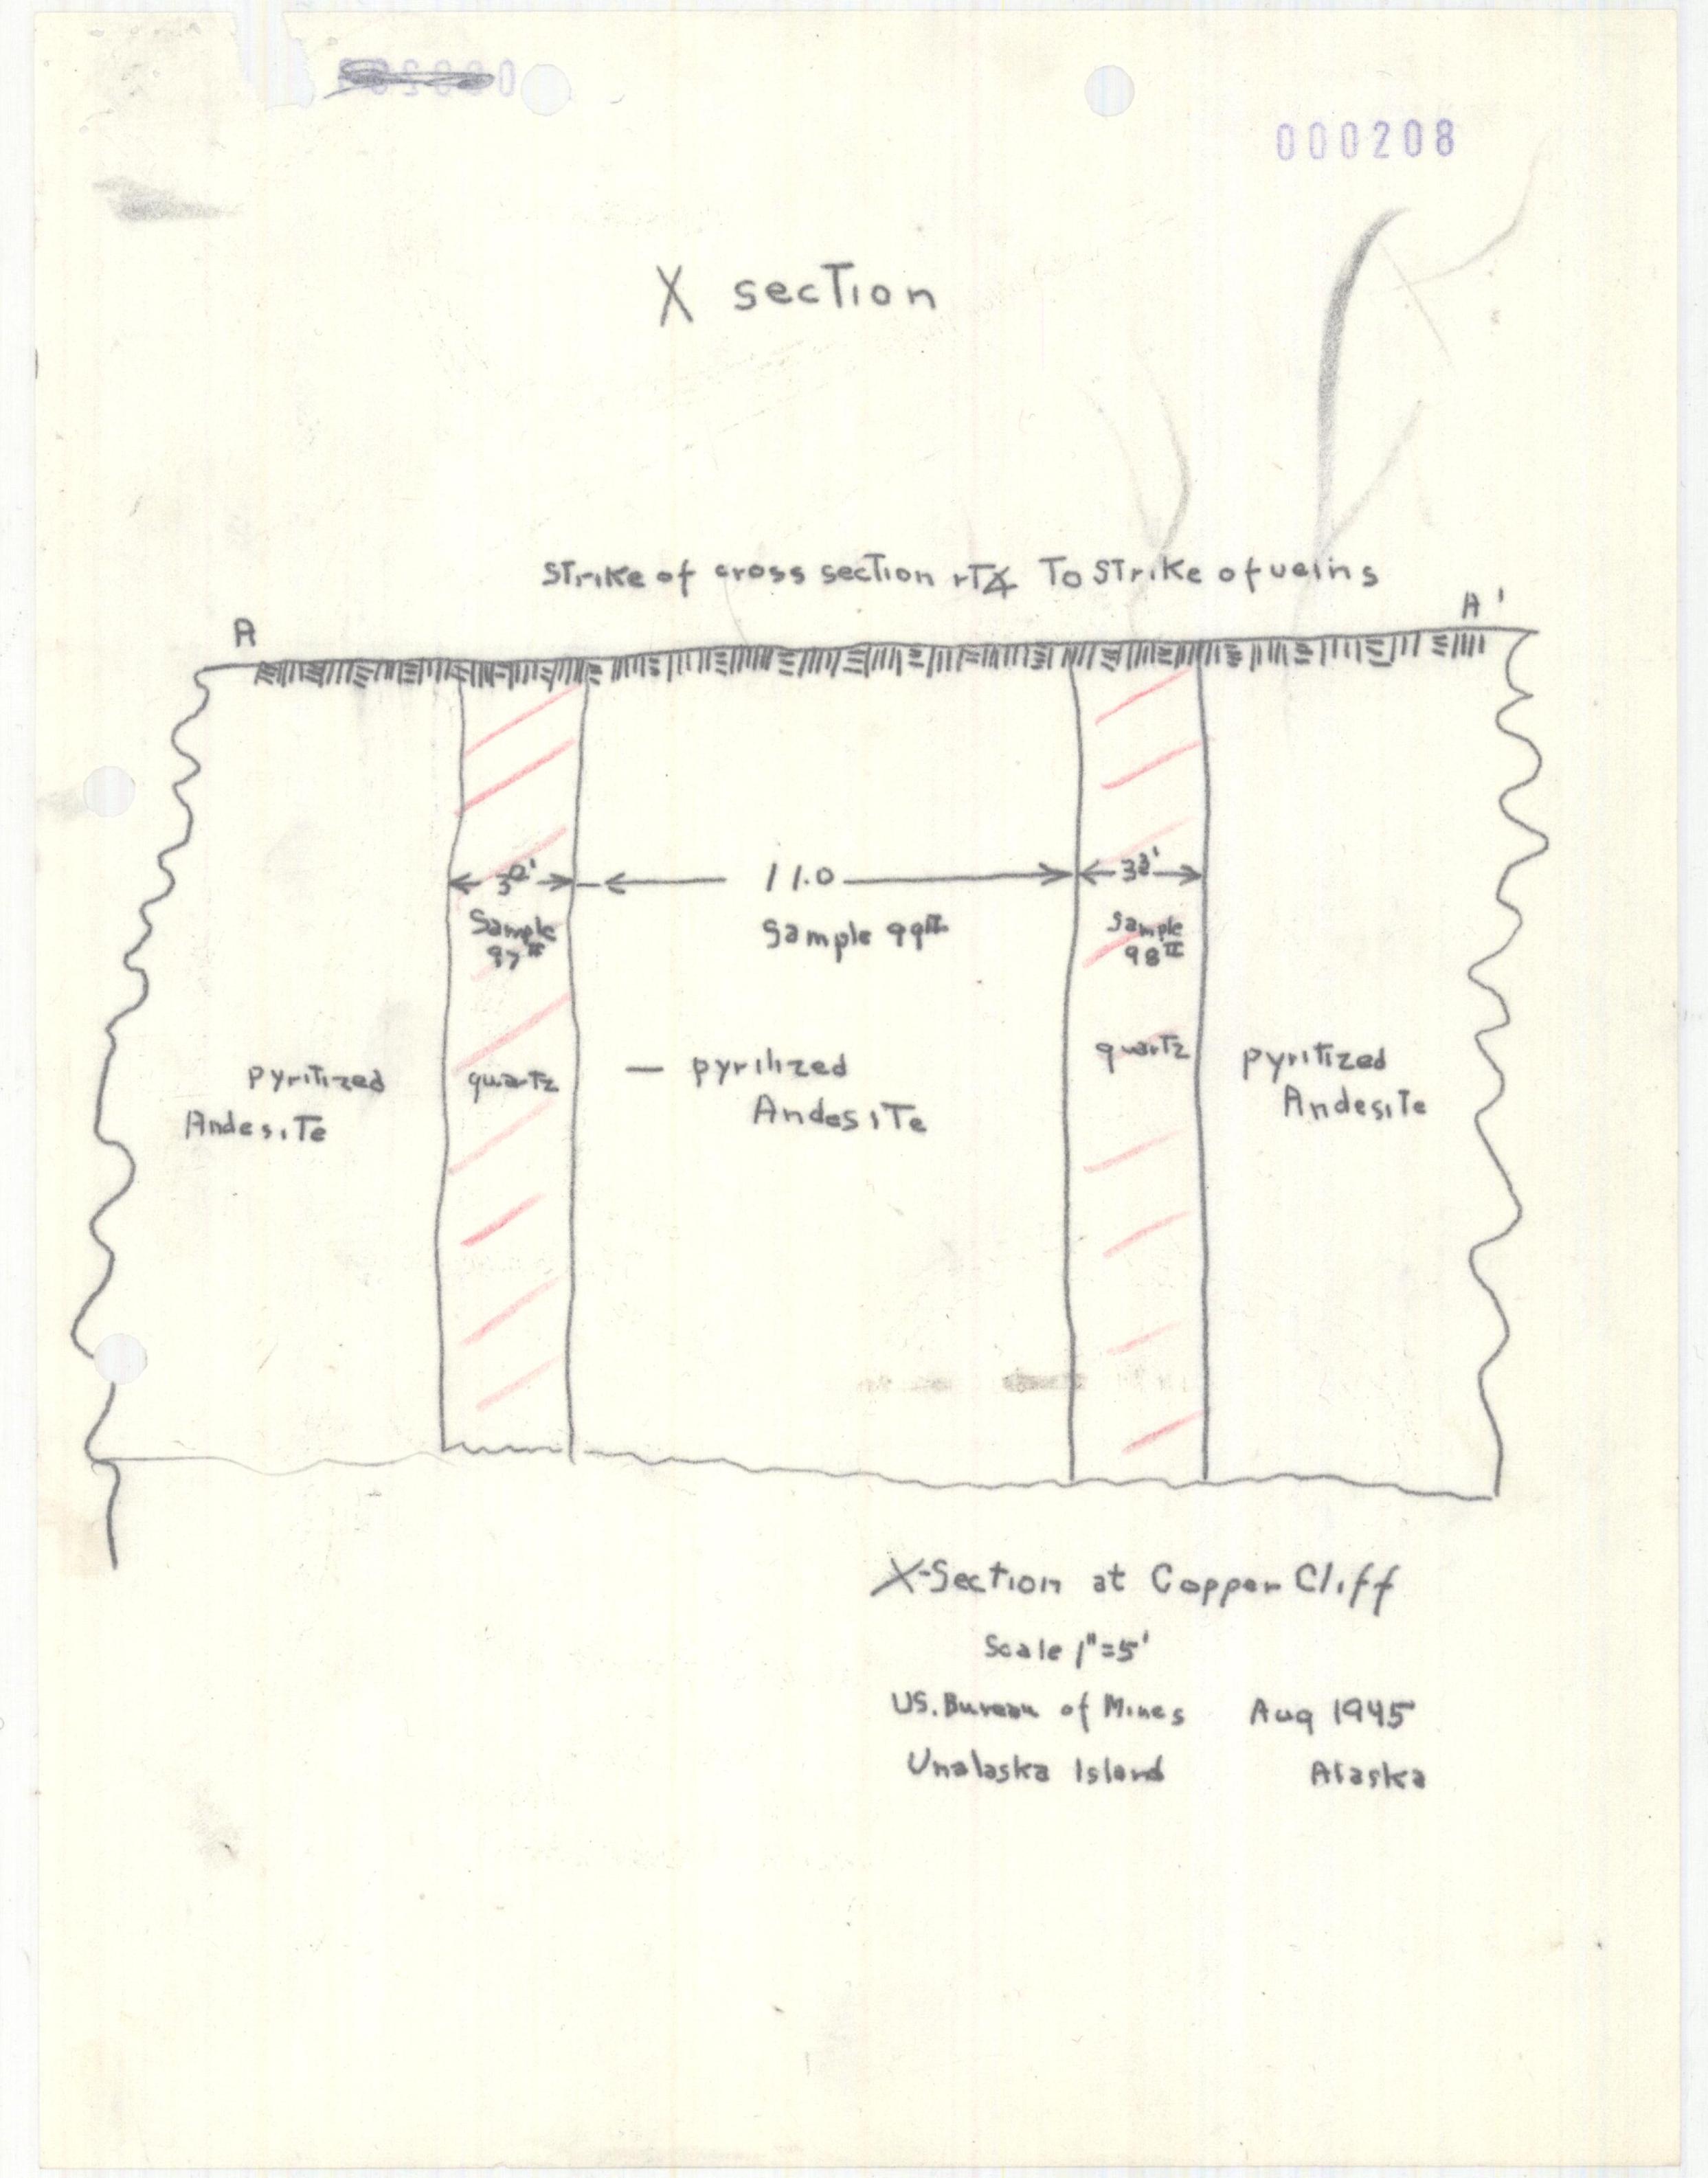 000208
X section
Strike of cross section rt∡ To Strike of veins
A A'
3.0' 11.0 3.3'
Sample 97 II
Sample 99 II
Sample 98 II
pyritized Andesite
quartz
— pyritized Andesite
quartz
pyritized Andesite
X-Section at Copper Cliff
Scale 1"=5'
US. Bureau of Mines Aug 1945
Unalaska Island Alaska